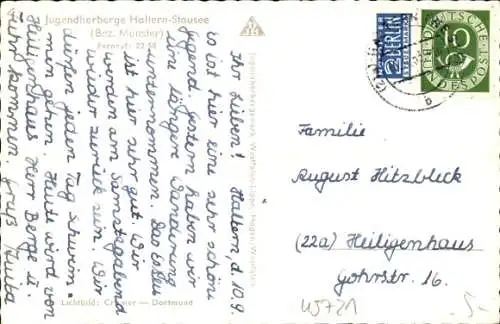 Jugendherberge Haltern-Stausee
(Bez. Münster)
Fernruf: 22 58
Ihr Lieben! Haltern, d. 10.9.
Es ist hier eine sehr schöne
Gegend. Gestern haben wir
eine längere Wanderung
unternommen. Das Essen
ist hier sehr gut. Wir
werden am Samstagabend
wieder zurück sein. Wir
dürfen jeden Tag schwim-
men gehen. Heute wird von
Heiligenhaus Herr Berge u.
kommen. Gruß
Lichtbild: Cramer — Dortmund
NOTOPFER
2 BERLIN
DEUTSCHE
BUNDESPOST
10
b
Familie
August Hitzbleck
(22a) Heiligenhaus
Gohrstr. 16.